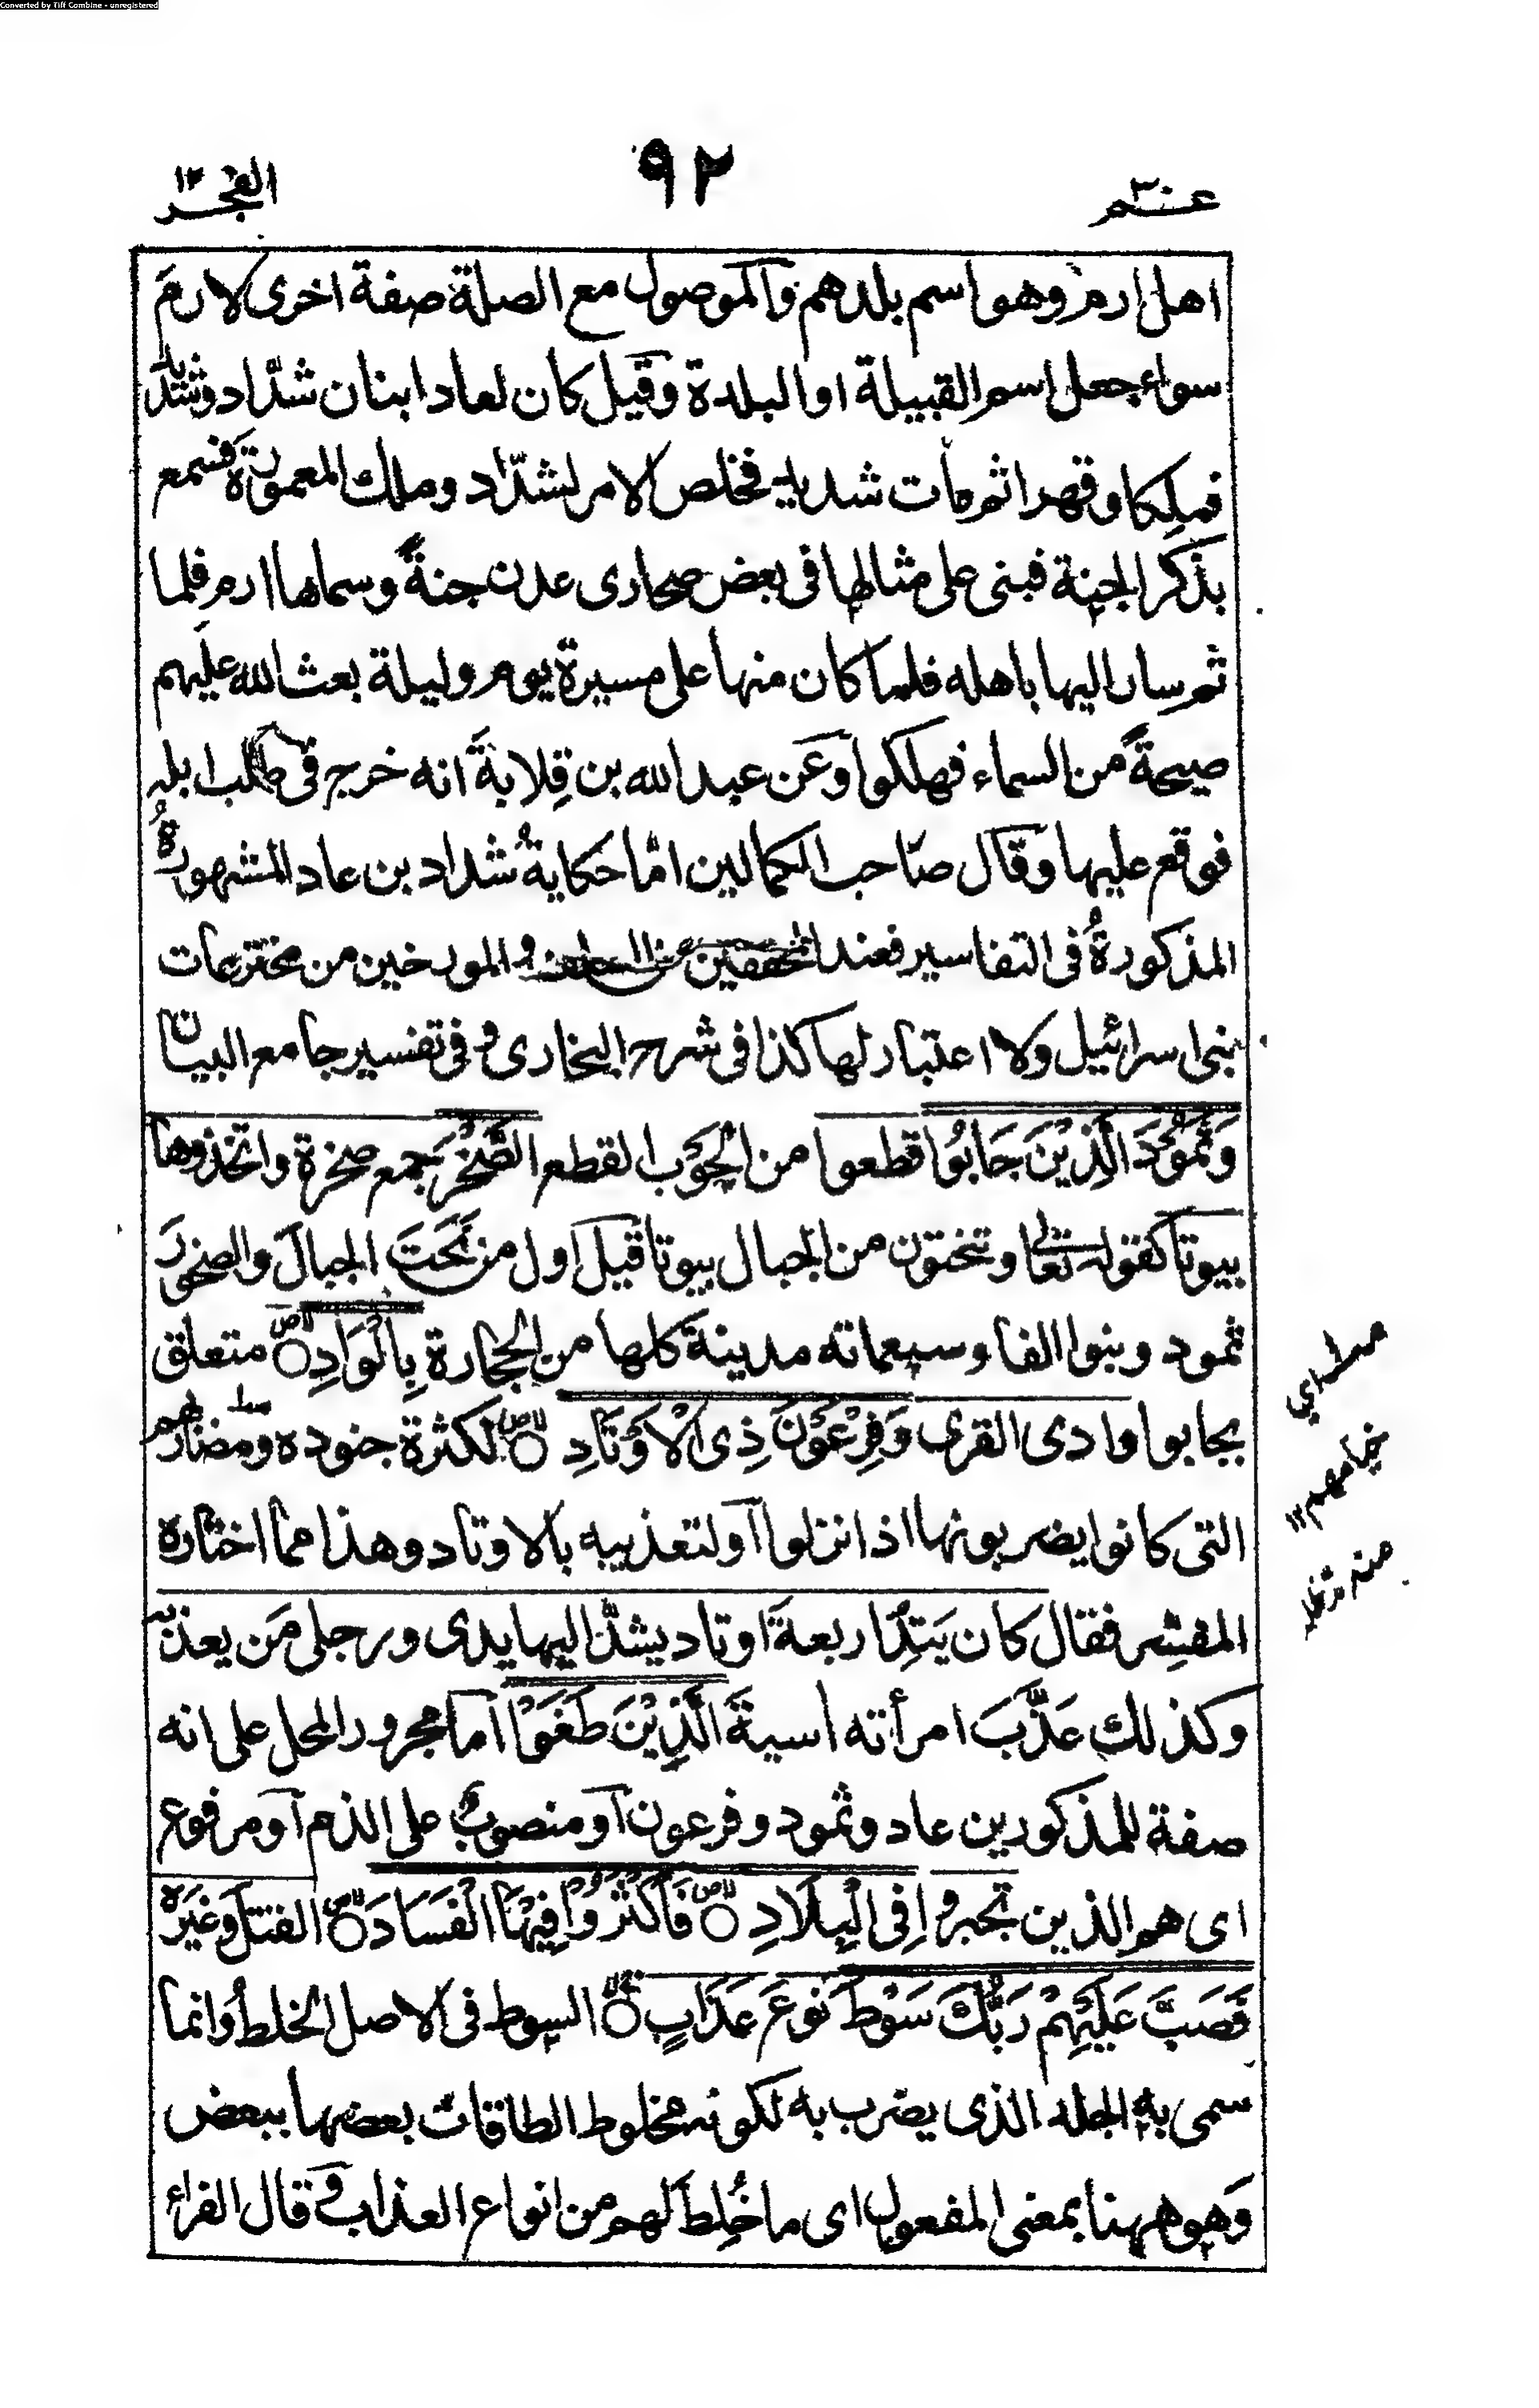 Converted by Tiff Combine - unregistered
عـم ٣٠
٩٢
الفجر ١٢
اهل ارم وهو اسم بلدهم والموصول مع الصلة صفة اخرى لارم
سواء جعل اسم القبيلة او البلدة وقيل كان لعاد ابنان شدّاد وشديد
فملكا وقهرا ثم مات شديد فخلص الامر لشدّاد وملك المعمورة فسمع
بذكر الجنة فبنى على مثالها فى بعض صحارى عدن جنةً وسماها ارم فلما
ثم سار اليها باهله فلما كان منها على مسيرة يوم وليلة بعث الله عليهم
صيحةً من السماء فهلكوا وعَن عبد الله بن قِلابةَ انه خرج فى طلب ابله
فوقع عليها وقال صاحب الكمالين امّا حكايةُ شداد بن عاد المشهورةُ
المذكورةُ فى التفاسير فعند المحققين من و المورخين من مخترعات
بنى اسرائيل ولا اعتبار لها كذا فى شرح البخارى و فى تفسير جامع البيان
وَثَمُوْدَ الَّذِيْنَ جَابُوا قطعوا من الجَوْب القطع الصَّخْرَ جمع صخرة واتخذوها
بيوتا كقوله تعالى وتنحتون من الجبال بيوتا قيل اول من نَحَتَ الجبالَ والصخورَ
ثمود وبنوا الفا وسبعمائه مدينة كلها من الحجارة بِالْوَادِ ۝ متعلق
بجابوا وادى القرى وَفِرْعَوْنَ ذِى الْاَوْتَادِ ۝ لكثرة جنوده ومضاربهم
التى كانوا يضربونها اذا نزلوا او لتعذيبه بالاوتاد وهذا مما اختاره
المفسِّر فقال كان يَتِدُ اربعةَ اوتاد يشدّ اليها يدى ورجلى مَن يعذبه
وكذلك عَذَّبَ امرأته اسيةَ الَّذِيْنَ طَغَوْا اما مجرور المحل على انه
صفة للمذكورين عاد وثمود وفرعون او منصوبٌ على الذم او مرفوع
اى هم الذين تجبروا فِى الْبِلَادِ ۝ فَاَكْثَرُوْا فِيْهَا الْفَسَادَ ۝ القتلَ وغيرَه
فَصَبَّ عَلَيْهِمْ رَبُّكَ سَوْطَ نوعَ عَذَابٍ ۝ السوط فى الاصل الخلط وانما
سمى به الجلد الذى يضرب به لكونه مخلوط الطاقات بعضها ببعض
وَهو ههنا بمعنى المفعول اى ما خُلِطَ لهم من انواع العذاب و قال الفراء
اى
خيامهم ١٢
منه